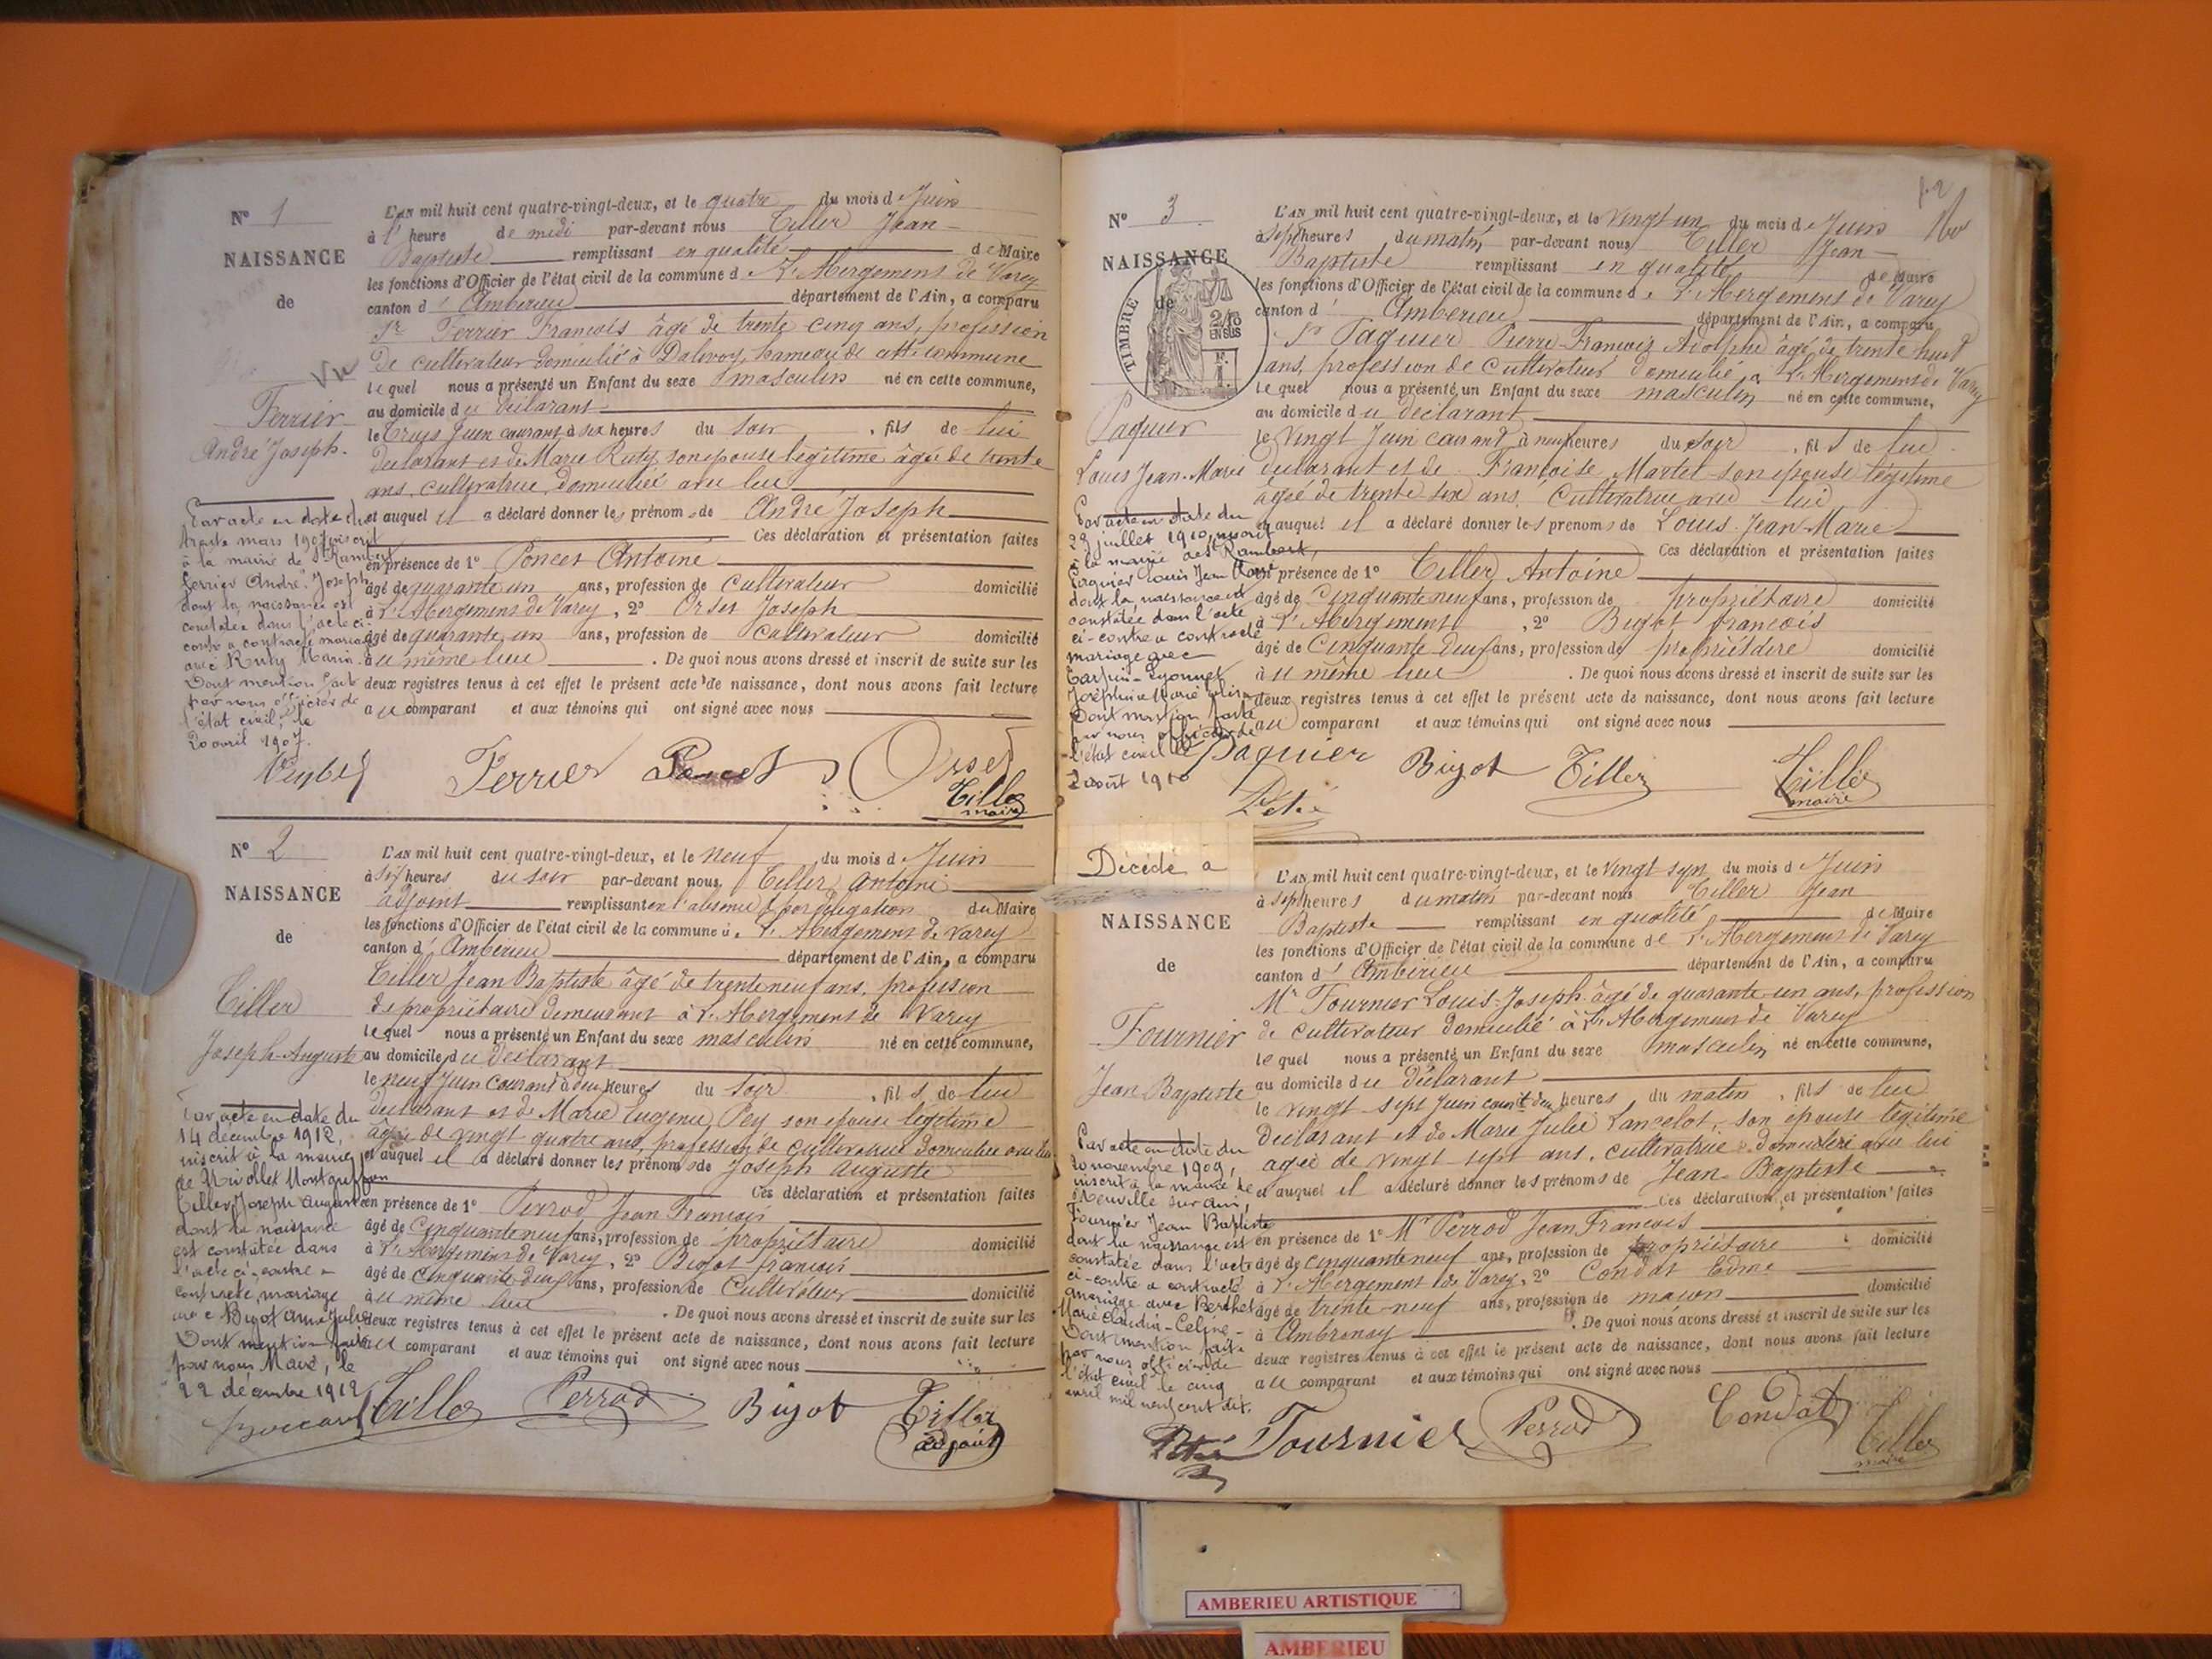 N° 1
NAISSANCE
de
Vu
Ferrier
André Joseph.
L'AN mil huit cent quatre-vingt-deux, et le quatre du mois d e Juin
à l' heure de midi par-devant nous Tiller Jean-
Baptiste remplissant en qualité de Maire
les fonctions d'Officier de l'état civil de la commune d e L'Abergement de Varey
canton d' Ambérieu département de l'Ain, a comparu
Sr Ferrier François âgé de trente cinq ans, profession
de cultivateur domicilié à Dalivoy, hameau de cette commune
lequel nous a présenté un Enfant du sexe masculin né en cette commune,
au domicile d u déclarant
le trois Juin courant à six heures du soir, fils de lui
déclarant et de Marie Ruty son épouse légitime âgée de trente
ans, cultivatrice, domiciliée avec lui
et auquel il a déclaré donner les prénoms de André Joseph
Ces déclaration et présentation faites
en présence de 1° Poncet Antoine
âgé de quarante un ans, profession de cultivateur domicilié
à L'Abergement de Varey, 2° Orset Joseph
âgé de quarante un ans, profession de cultivateur domicilié
au même lieu. De quoi nous avons dressé et inscrit de suite sur les
deux registres tenus à cet effet le présent acte de naissance, dont nous avons fait lecture
au comparant et aux témoins qui ont signé avec nous
Par acte en date du
trente mars 1907 inscrit
à la mairie de St Rambert
Ferrier André Joseph
dont la naissance est
constatée dans l'acte ci-
contre a contracté mariage
avec Ruty Maria.
Dont mention faite
par nous officier de
l'état civil, le
20 avril 1907.
Ferrier Poncet Orset
Tiller
maire
N° 2
NAISSANCE
de
Tiller
Joseph-Auguste
L'AN mil huit cent quatre-vingt-deux, et le neuf du mois d e Juin
à six heures du soir par-devant nous Tiller Antoine
adjoint remplissant en l'absence & par délégation du Maire
les fonctions d'Officier de l'état civil de la commune d e L'Abergement de Varey
canton d' Ambérieu département de l'Ain, a comparu
Tiller Jean Baptiste âgé de trente neuf ans, profession
de propriétaire demeurant à L'Abergement de Varey
lequel nous a présenté un Enfant du sexe masculin né en cette commune,
au domicile d u déclarant
le neuf Juin courant à deux heures du soir, fils de lui
déclarant et de Marie Eugénie Pey son épouse légitime
âgée de vingt quatre ans, profession de cultivatrice domiciliée avec lui
et auquel il a déclaré donner les prénoms de Joseph Auguste
Ces déclaration et présentation faites
en présence de 1° Perrod Jean François
âgé de cinquante neuf ans, profession de propriétaire domicilié
à L'Abergement de Varey, 2° Bigot François
âgé de cinquante deux ans, profession de cultivateur domicilié
au même lieu. De quoi nous avons dressé et inscrit de suite sur les
deux registres tenus à cet effet le présent acte de naissance, dont nous avons fait lecture
au comparant et aux témoins qui ont signé avec nous
Par acte en date du
14 décembre 1912,
inscrit à la mairie
de Nivollet Montgriffon
Tiller Joseph Auguste
dont la naissance
est constatée dans
l'acte ci-contre a
contracté mariage
avec Bigot
Dont mention faite
par nous Maire, le
22 décembre 1912
Tiller Perrod Bigot Tiller
adjoint
N° 3
NAISSANCE
de
TIMBRE
2/10
EN SUS
Paquier
Louis Jean-Marie
L'AN mil huit cent quatre-vingt-deux, et le vingt un du mois d e Juin
à sept heures du matin par-devant nous Tiller Jean-
Baptiste remplissant en qualité de Maire
les fonctions d'Officier de l'état civil de la commune d e L'Abergement de Varey
canton d' Ambérieu département de l'Ain, a comparu
Sr Paquier Pierre-François Adolphe âgé de trente huit
ans, profession de cultivateur domicilié à L'Abergement de Varey
lequel nous a présenté un Enfant du sexe masculin né en cette commune,
au domicile d u déclarant
le vingt Juin courant à neuf heures du soir, fils de lui
déclarant et de Françoise Martel son épouse légitime
âgée de trente six ans, cultivatrice avec lui
et auquel il a déclaré donner les prénoms de Louis Jean-Marie
Ces déclaration et présentation faites
en présence de 1° Tiller Antoine
âgé de cinquante neuf ans, profession de propriétaire domicilié
à L'Abergement, 2° Bigot François
âgé de cinquante deux ans, profession de propriétaire domicilié
au même lieu. De quoi nous avons dressé et inscrit de suite sur les
deux registres tenus à cet effet le présent acte de naissance, dont nous avons fait lecture
au comparant et aux témoins qui ont signé avec nous
Par acte en date du
29 juillet 1910, inscrit
à la mairie de St Rambert,
Paquier Louis Jean Marie
dont la naissance est
constatée dans l'acte
ci-contre a contracté
mariage avec
Joséphine Marie
Dont mention faite
par nous officier de
l'état civil le
2 août 1910
Paquier Bigot Tiller Tiller
maire
Décédé à
NAISSANCE
de
Fournier
Jean Baptiste
L'AN mil huit cent quatre-vingt-deux, et le vingt sept du mois d e Juin
à sept heures du matin par-devant nous Tiller Jean
Baptiste remplissant en qualité de Maire
les fonctions d'Officier de l'état civil de la commune de L'Abergement de Varey
canton d' Ambérieu département de l'Ain, a comparu
Mr Fournier Louis-Joseph âgé de quarante-un ans, profession
de cultivateur domicilié à L'Abergement de Varey
lequel nous a présenté un Enfant du sexe masculin né en cette commune,
au domicile d u déclarant
le vingt-sept Juin cour̄t à deux heures du matin, fils de lui
déclarant et de Marie Julie Lancelot, son épouse légitime
âgée de vingt-sept ans, cultivatrice domiciliée avec lui
et auquel il a déclaré donner les prénoms de Jean-Baptiste
Ces déclaration et présentation faites
en présence de 1° Mr Perrod Jean François
âgé de cinquante neuf ans, profession de propriétaire domicilié
à L'Abergement de Varey, 2° Condat Edme
âgé de trente-neuf ans, profession de maçon domicilié
à Ambronay. De quoi nous avons dressé et inscrit de suite sur les
deux registres tenus à cet effet le présent acte de naissance, dont nous avons fait lecture
au comparant et aux témoins qui ont signé avec nous
Par acte en date du
20 novembre 1909,
inscrit à la mairie de
Neuville sur Ain,
Fournier Jean Baptiste
dont la naissance est
constatée dans l'acte
ci-contre a contracté
mariage avec Berthet
Marie Claudia-Celine-
Dont mention faite
par nous officier de
l'état civil le cinq
avril mil neuf cent dix.
Fournier Perrod Condat Tiller
maire
AMBERIEU ARTISTIQUE
AMBERIEU